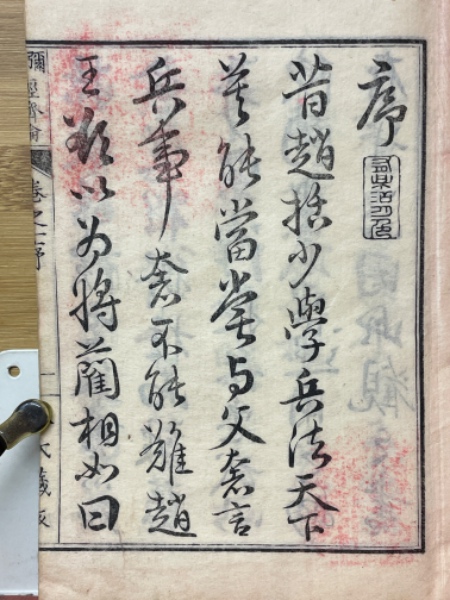 序
昔趙括少學兵法天下
莫能當嘗與父奢言
兵事奢不能難趙
王欲以為將藺相如曰
彌經齊
卷之一序
一
木藏版